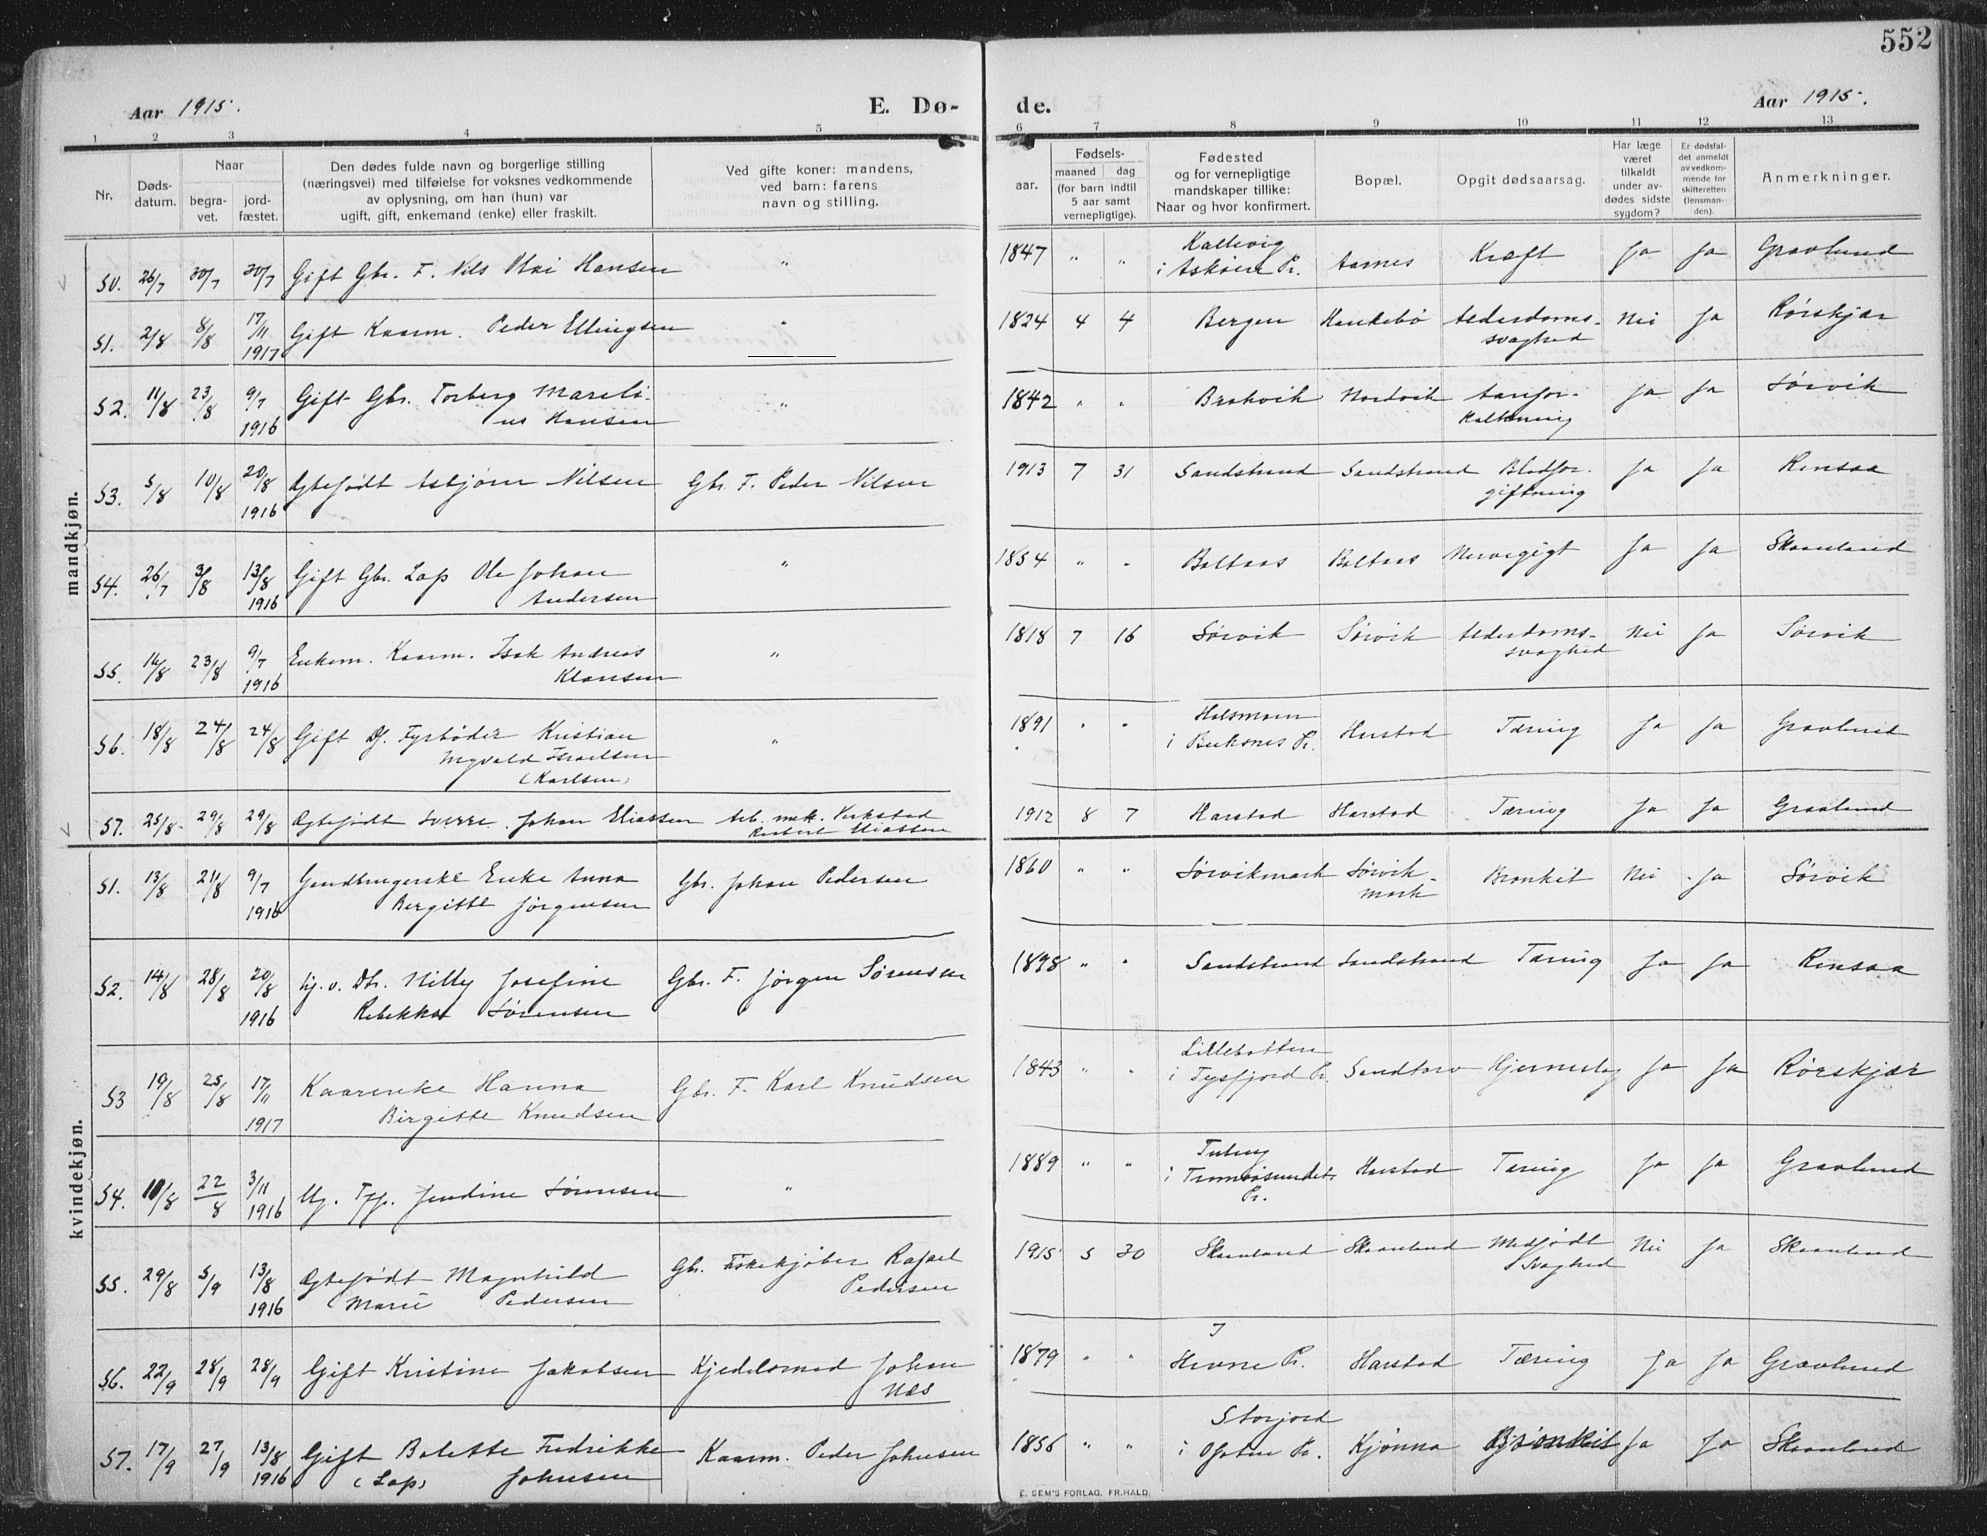 552
Aar 1915. E. Dø- de. Aar 1915.
1 2 3 4 5 6 7 8 9 10 11 12 13
Nr.
Døds-
datum.
Naar
begra-
vet.
jord-
fæstet.
Den dødes fulde navn og borgerlige stilling
(næringsvei) med tilføielse for voksnes vedkommende
av oplysning, om han (hun) var
ugift, gift, enkemand (enke) eller fraskilt.
Ved gifte koner: mandens,
ved barn: farens
navn og stilling.
Fødsels-
aar.
maaned
dag
(for barn indtil
5 aar samt
vernepligtige).
Fødested
og for vernepligtige
mandskaper tillike:
Naar og hvor konfirmert.
Bopæl.
Opgit dødsaarsag.
Har læge
været
tilkaldt
under av-
dødes sidste
sygdom?
Er dødsfal-
det anmeldt
av vedkom-
mende for
skifteretten
(lensman-
den).
Anmerkninger.
mandkjøn.
50. 26/7 30/7 30/7 Gift Gbr. F. Nils Hansen " 1847 " " Kallevig
i Askøens Pr. Aarnes Kræft Ja Ja Gravlund
51. 2/8 8/8 17/11 1917 Gift Kaarm. Peder Ellingsen " 1824 4 4 Bergen Handebø Alderdoms-
svaghed Nei Ja Rørskjær
52. 11/8 23/8 9/7 1916 Gift Gbr. Torberg Mareli-
us Hansen " 1842 " " Brokvik Nordvik Aarefor-
kalkning Ja Ja Sørvik
53. 5/8 10/8 20/8 1916 Ægtefødt Asbjørn Nilsen Gbr. F. Peder Nilsen 1913 7 31 Sandstrand Sandstrand Blodfor-
giftning Ja Ja Rensaa
54. 26/7 3/8 13/8 1916 Gift Gbr. Lap Ole Johan
Andersen " 1854 " " Boltaas Boltaas Nervegigt Ja Ja Skaanland
55. 14/8 23/8 9/7 1916 Enkem. Kaarm. Isak Andreas
Klausen " 1818 7 16 Sørvik Sørvik Alderdoms-
svaghed Nei Ja Sørvik
56. 18/8 24/8 24/8 Gift D/. Fyrbøder Kristian
Ingvald
(Karlsen) " 1891 " " Holsmoen
i Buksnes Pr. Harstad Tæring Ja Ja Gravlund
57. 25/8 29/8 29/8 Ægtefødt Sverre Johan Eliassen Arb. mek. Verksted
Eliassen 1912 8 7 Harstad Harstad Tæring Ja Ja Gravlund
kvindekjøn.
51. 13/8 21/8 9/7 1916 Gaardbrugerske Enke Anna
Bergitte Jørgensen Gbr. Johan Pedersen 1860 " " Sørvikmark Sørvik-
mark Bronkit Nei Ja Sørvik
52. 14/8 28/8 20/8 1916 Ug. v. Dtr. Milly Josefine
Rebekka Sørensen Gbr. F. Jørgen Sørensen 1898 " " Sandstrand Sandstrand Tæring Ja Ja Rensaa
53 19/8 25/8 17/11 1917 Kaarenke Hanna
Birgitte Knudsen Gbr. F. Karl Knudsen 1843 " " Lillebotten
i Tysfjord Pr. Sandtorv Hjerneslag Ja Ja Rørskjær
54. 10/8 22/8 3/11 1916 Ug. Tpp. Jendine Sørensen " 1889 " "
i Tromsøsundets
Pr. Harstad Tæring Ja Ja Gravlund
55. 29/8 5/9 13/8 1916 Ægtefødt Magnhild
Marie Pedersen Gbr. Fiskekjøber Rafael
Pedersen 1915 5 30 Skaanland Skaanland Medfødt
Svaghed Nei Ja Skaanland
56. 22/9 28/9 28/9 Gift Kristine Jakobsen Kjedelsmed Johan
Næs 1879 " " I
Hevne Pr. Harstad Tæring Ja Ja Gravlund
57. 17/9 27/9 13/8 1916 Gift Bolette Fredrikke
(Lap) Johnsen Kaarm. Peder Johnsen 1856 " " Storjord
i Ofoten Pr. Kjønna Bronkit Ja Ja Skaanland
E. SEM'S FORLAG, FR.HALD.